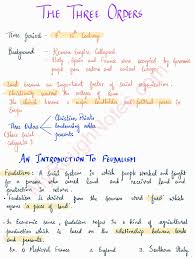 THE THREE ORDERS
Time period - 9th - 16th Century
Background - Roman Empire collapsed
Italy, Spain and France were occupied by Germanic
people from eastern and central Europe.
Land became an important factor of social organisation.
Christianity
The church became a major landholder and political power in
Europe
Three Orders
(Three social categories)
Christian Priests
Landowning nobles
Peasants
AN INTRODUCTION TO FEUDALISM
Feudalism - A social system in which people worked and fought
for a person who gave land and protection in
return.
Feudalism is derived from the German word 'feud' which
means 'a piece of land'.
In Economic sense, feudalism refers to a kind of agricultural
production which is based on the relationship between
lords and peasants.
Medieval France
England
Southern Italy